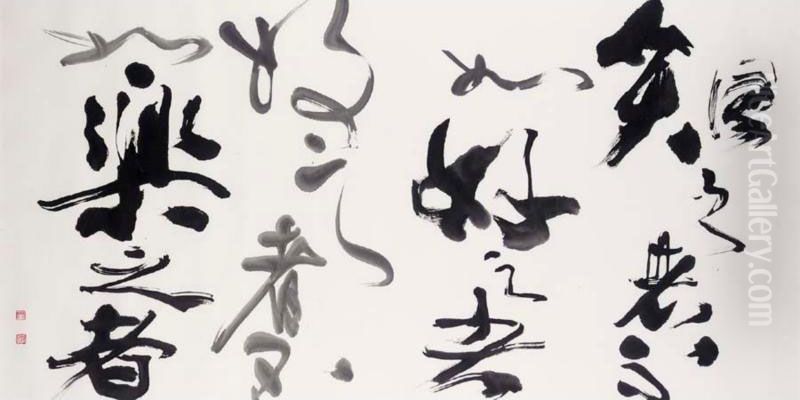 知之者不
如好之者
好之者不
如樂之者